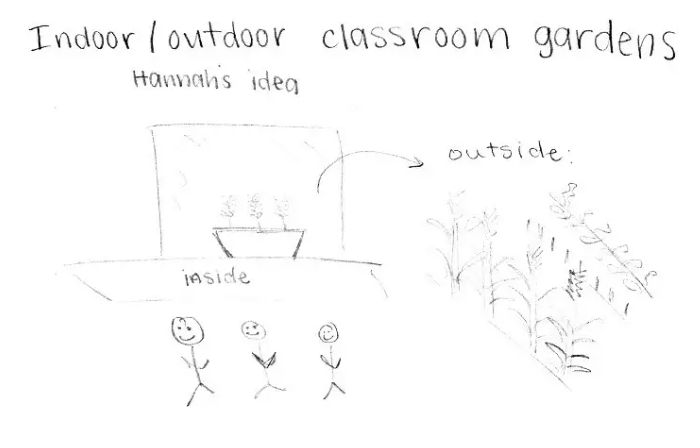 Indoor/outdoor classroom gardens
Hannah's idea
outside:
inside